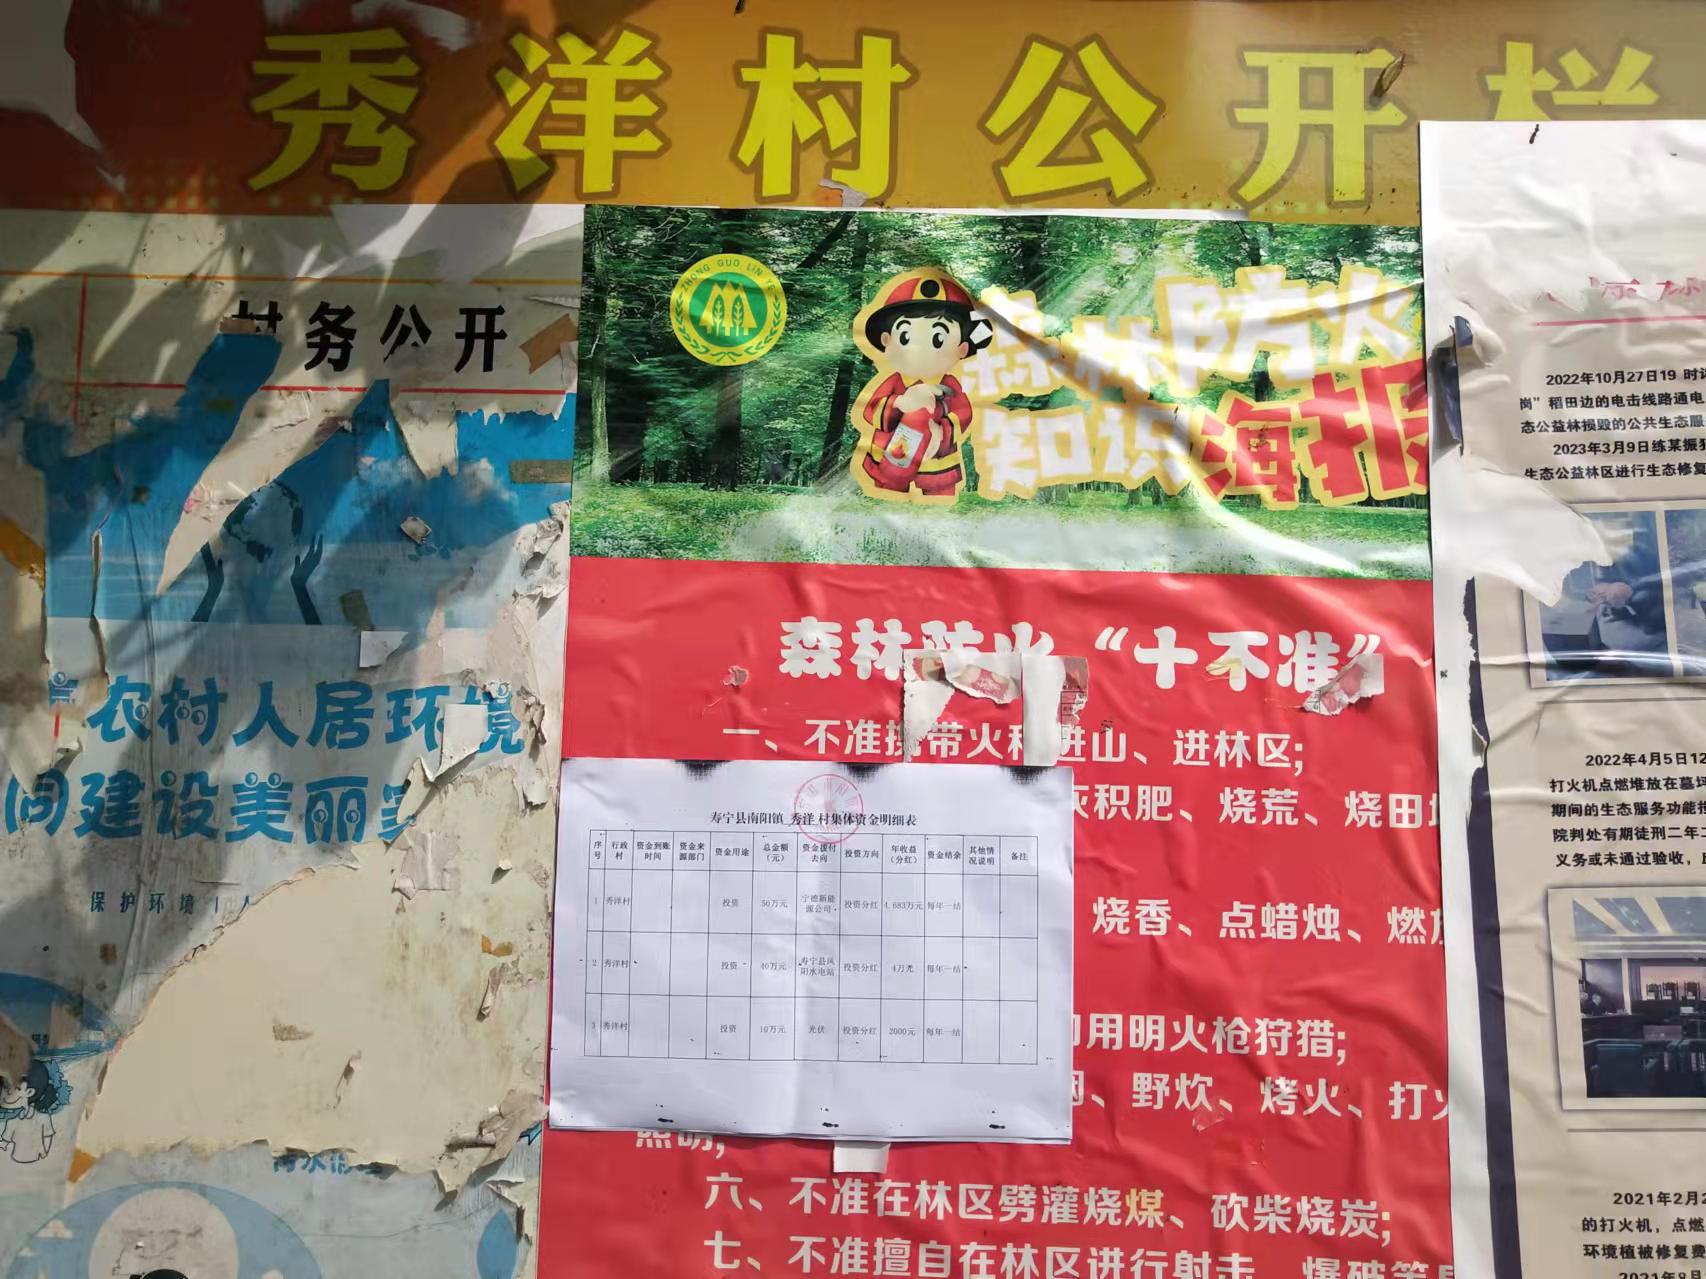 秀洋村公开栏
村务公开
农村人居环境
同建设美丽家
保护环境 人
ZHONG GUO LIN YE
森林防火
知识海报
森林防火“十不准”
一、不准携带火种进山、进林区;
灰积肥、烧荒、烧田
烧香、点蜡烛、燃放
用明火枪狩猎;
、野炊、烤火、打火
照明;
六、不准在林区劈灌烧煤、砍柴烧炭;
七、不准擅自在林区进行射击、爆破等
寿宁县南阳镇 秀洋 村集体资金明细表
序号 行政村 资金到账时间 资金来源部门 资金用途 总金额(元) 资金拨付去向 投资方向 年收益(分红) 资金结余 其他情况说明 备注
1 秀洋村 投资 50万元 宁德新能源公司 投资分红 4.683万元 每年一结
2 秀洋村 投资 40万元 寿宁县凤阳水电站 投资分红 4万元 每年一结
3 秀洋村 投资 10万元 光伏 投资分红 2000元 每年一结
2022年10月27日19时许
岗”稻田边的电击线路通电
态公益林损毁的公共生态服
2023年3月9日练某振
生态公益林区进行生态修复
2022年4月5日12
打火机点燃堆放在墓坪
期间的生态服务功能损
院判处有期徒刑二年二
义务或未通过验收，
2021年2月2
的打火机，点燃
环境植被修复费
2021年8月